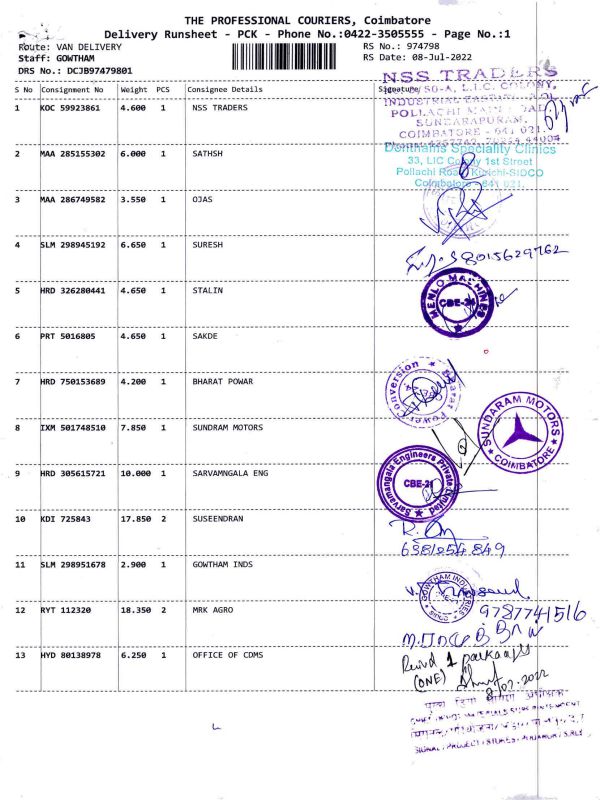 THE PROFESSIONAL COURIERS, Coimbatore
Delivery Runsheet - PCK - Phone No.:0422-3505555 - Page No.:1
Route: VAN DELIVERY
RS No.: 974798
Staff: GOWTHAM
RS Date: 08-Jul-2022
DRS No.: DCJB97479801
S No Consignment No Weight PCS Consignee Details Signature
1 KOC 59923861 4.600 1 NSS TRADERS
NSS TRADERS
L.I.C. COLONY,
INDUSTRIAL
POLLACHI
SUNDARAPURAM,
COIMBATORE - 641 021.
2 MAA 285155302 6.000 1 SATHSH
Speciality Clinics
33, LIC Colony 1st Street
Pollachi Road Kurichi-SIDCO
Coimbatore - 641 021.
3 MAA 286749582 3.550 1 OJAS
4 SLM 298945192 6.650 1 SURESH
8015629762
5 HRD 326280441 4.650 1 STALIN
MENLO MACHINES
CBE-21
6 PRT 5016805 4.650 1 SAKDE
7 HRD 750153689 4.200 1 BHARAT POWAR
Bharat Power Conversion
8 IXM 501748510 7.850 1 SUNDRAM MOTORS
SUNDARAM MOTORS
COIMBATORE
9 HRD 305615721 10.000 1 SARVAMNGALA ENG
Sarvamangala Engineers Private Limited
CBE-21
10 KDI 725843 17.850 2 SUSEENDRAN
11 SLM 298951678 2.900 1 GOWTHAM INDS
GOWTHAM INDUSTRIES
12 RYT 112320 18.350 2 MRK AGRO
9787741516
13 HYD 80138978 6.250 1 OFFICE OF CDMS
(ONE)
8/07.2022